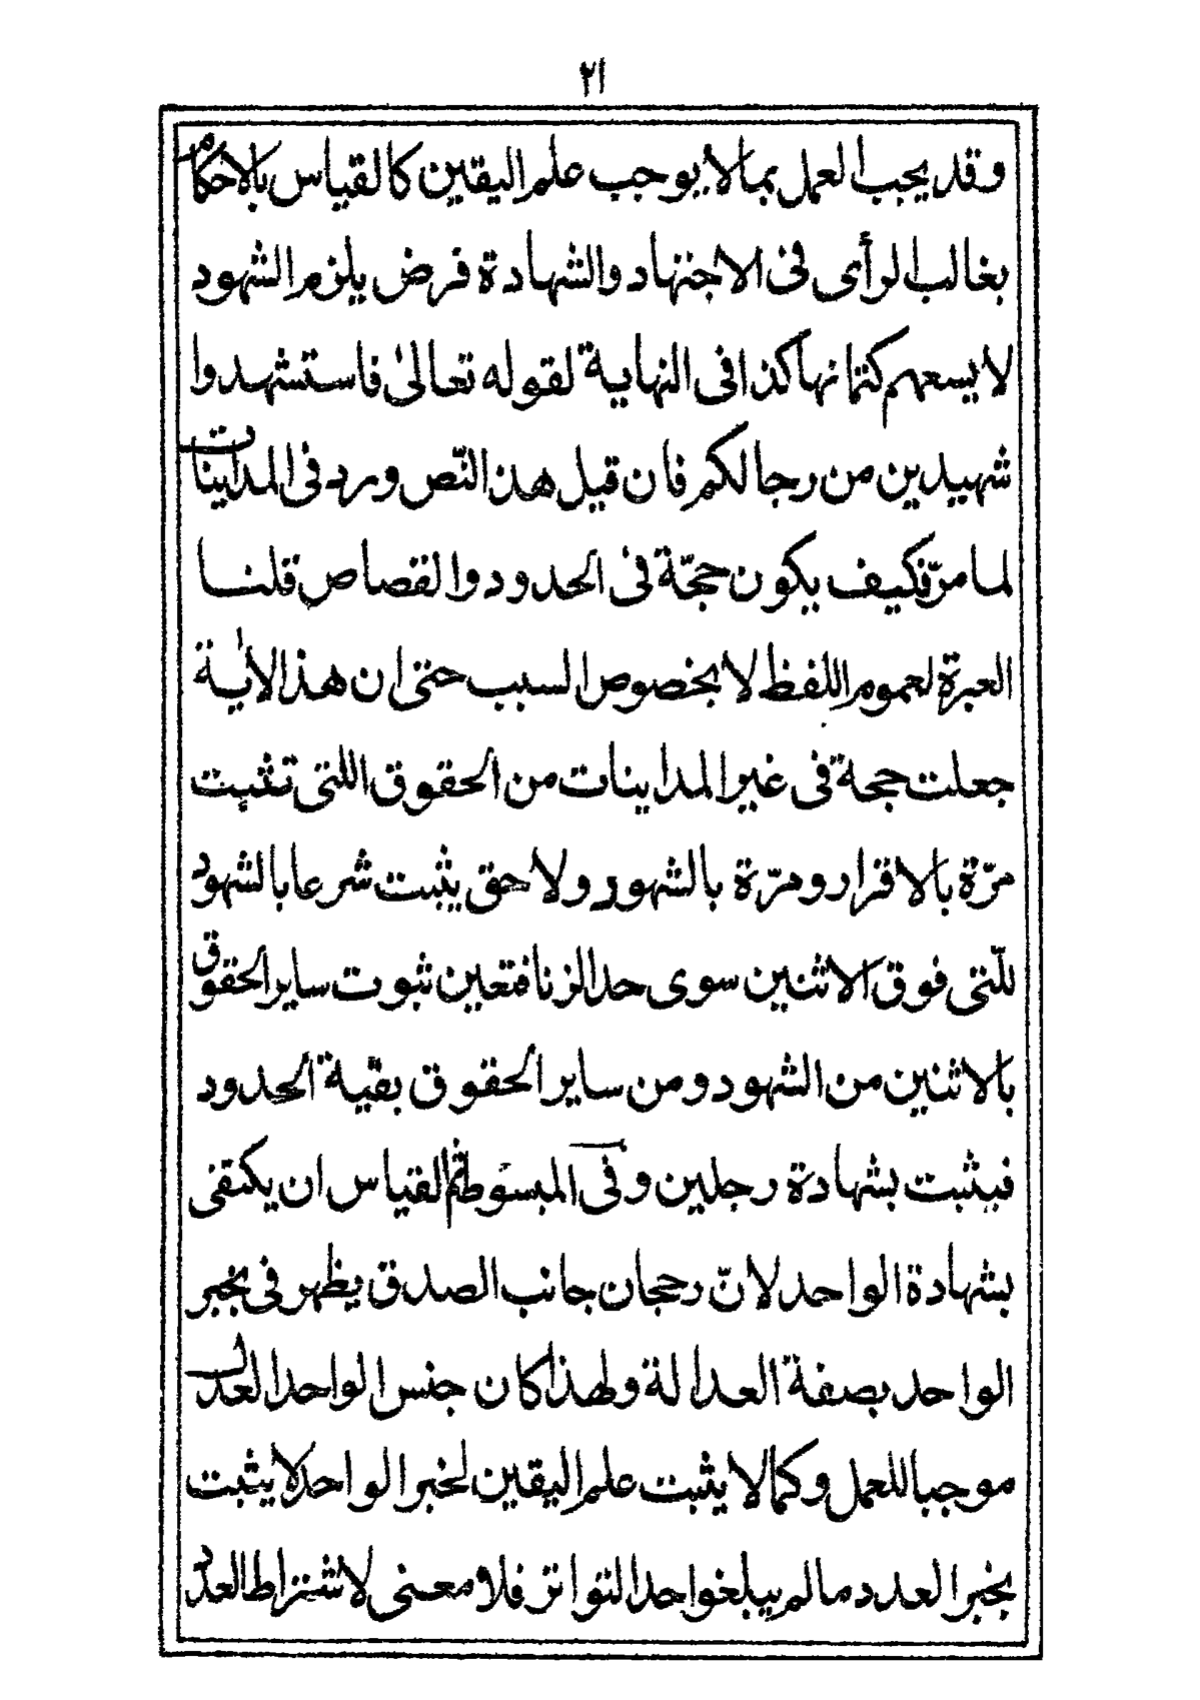 ٢١
وقد يجب العمل بمالا يوجب علم اليقين كالقياس بالاحكام
بغالب الرأى فى الاجتهاد والشهادة فرض يلزم الشهود
لا يسعهم كتمانها كذا فى النهاية لقوله تعالىٰ فاستشهدوا
شهيدين من رجالكم فان قيل هذ النّص ورد فى المداينات
لما مرّ فكيف يكون حجّة فى الحدود والقصاص قلنا
العبرة لعموم اللفظ لا بخصوص السبب حتى ان هذ الاٰية
جعلت حجة فى غير المداينات من الحقوق اللتى تثبت
مرّة بالاقرار ومرّة بالشهور ولا حق يثبت شرعا بالشهود
للّتى فوق الاثنين سوى حد الزنا فتعين ثبوت ساير الحقوق
بالاثنين من الشهود ومن ساير الحقوق بقيّة الحدود
فيثبت بشهادة رجلين وفى المبسوط ثم القياس ان يكتفى
بشهادة الواحد لانّ رجحان جانب الصدق يظهر فى بخبر
الواحد بصفة العدالة ولهذا كان جنس الواحد العدل
موجبا للعمل وكما لا يثبت علم اليقين لخبر الواحد لا يثبت
بخبر العدد مالم يبلغوا حد التواتر فلا معنى لاشتراط العدد